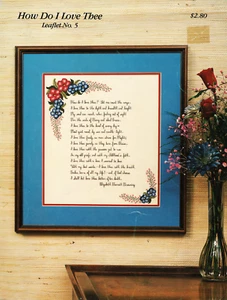 How Do I Love Thee
Leaflet No. 5
$2.80
How do I love thee? Let me count the ways.
I love thee to the depth and breadth and height
My soul can reach, when feeling out of sight
For the ends of Being and ideal Grace.
I love thee to the level of every day's
Most quiet need, by sun and candle-light.
I love thee freely, as men strive for Right;
I love thee purely, as they turn from Praise.
I love thee with the passion put to use
In my old griefs, and with my childhood's faith.
I love thee with a love I seemed to lose
With my lost saints, I love thee with the breath,
Smiles, tears, of all my life! and, if God choose,
I shall but love thee better after death.
Elizabeth Barrett Browning